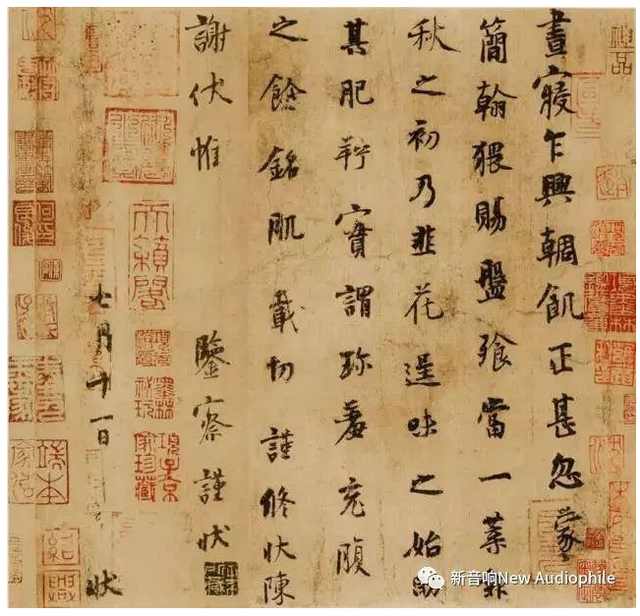 晝寢乍興輖飢正甚忽蒙
簡翰猥賜盤飧當一葉報
秋之初乃韭花逞味之始助
其肥羜實謂珍羞充腹
之餘銘肌載切謹修狀陳
謝伏惟 鑒察謹狀
七月十一日 狀
天籟閣
項子京家珍藏
紹興
新音响New Audiophile